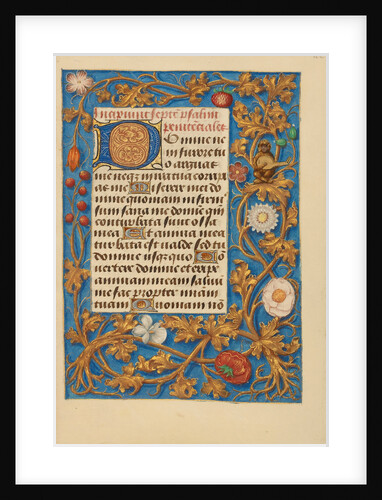 Incipiunt septē psalmi
penitenciales
Domine ne
in furore tu
o arguas
me neqz in ira tua corripi
as me Miserere mei do
mine quoniam infirmus
sum sana me domine qm̄
conturbata sunt ossa
mea Et anima mea tur
bata est valde sed tu
domine usquequo Cō
uertere domine et eripe
animam meam saluū
me fac propter miām
tuam Quoniam nō